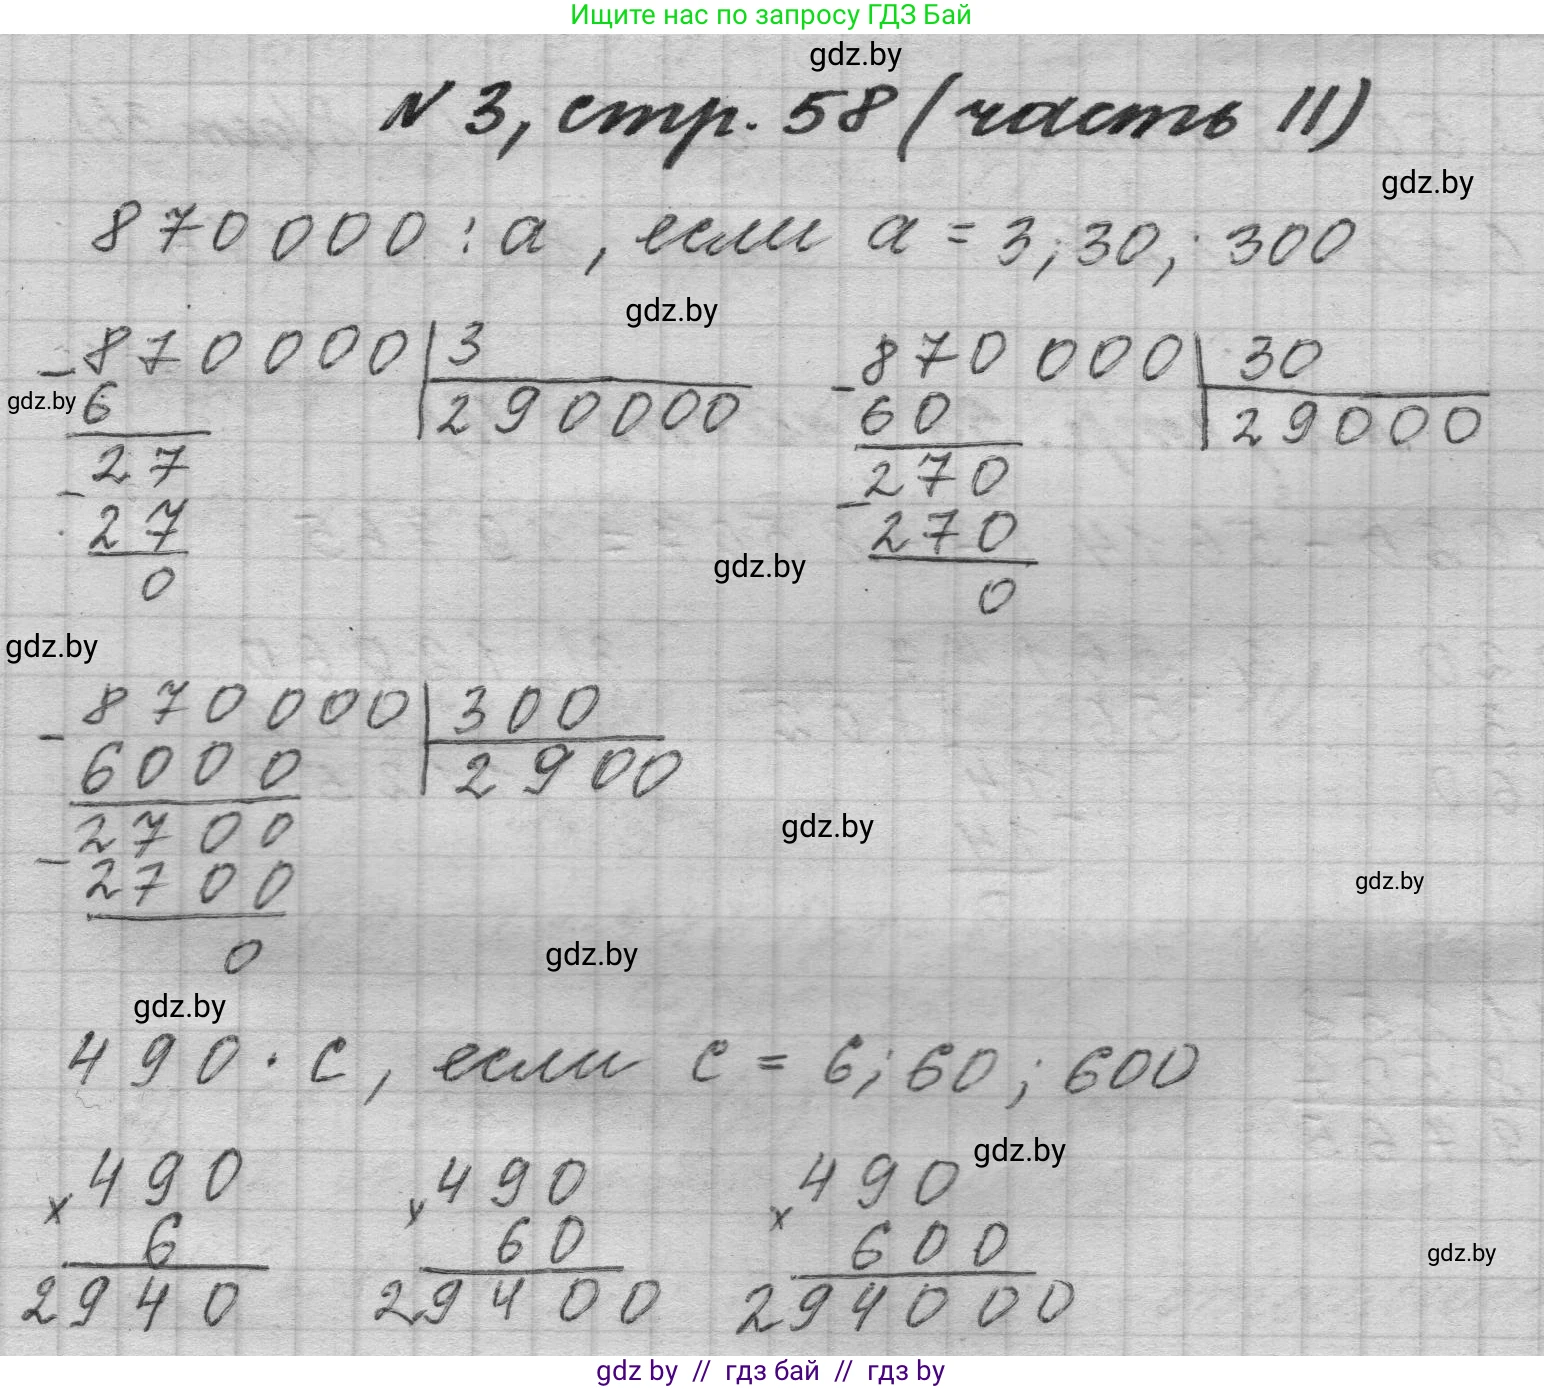 Ищите нас по запросу ГДЗ Бай
gdz.by
N 3, стр. 58 (часть II)
gdz.by
870000 : a , если a = 3; 30; 300
gdz.by
- 870000 | 3
gdz.by
6
290000
27
- 27
0
- 870000 | 30
60
29000
270
- 270
0
gdz.by
gdz.by
- 870000 | 300
6000
2900
2700
- 2700
0
gdz.by
gdz.by
gdz.by
gdz.by
490 · c , если c = 6; 60; 600
gdz.by
490
x 6
2940
490
x 60
29400
490
x 600
294000
gdz.by
gdz by // гдз бай // гдз by